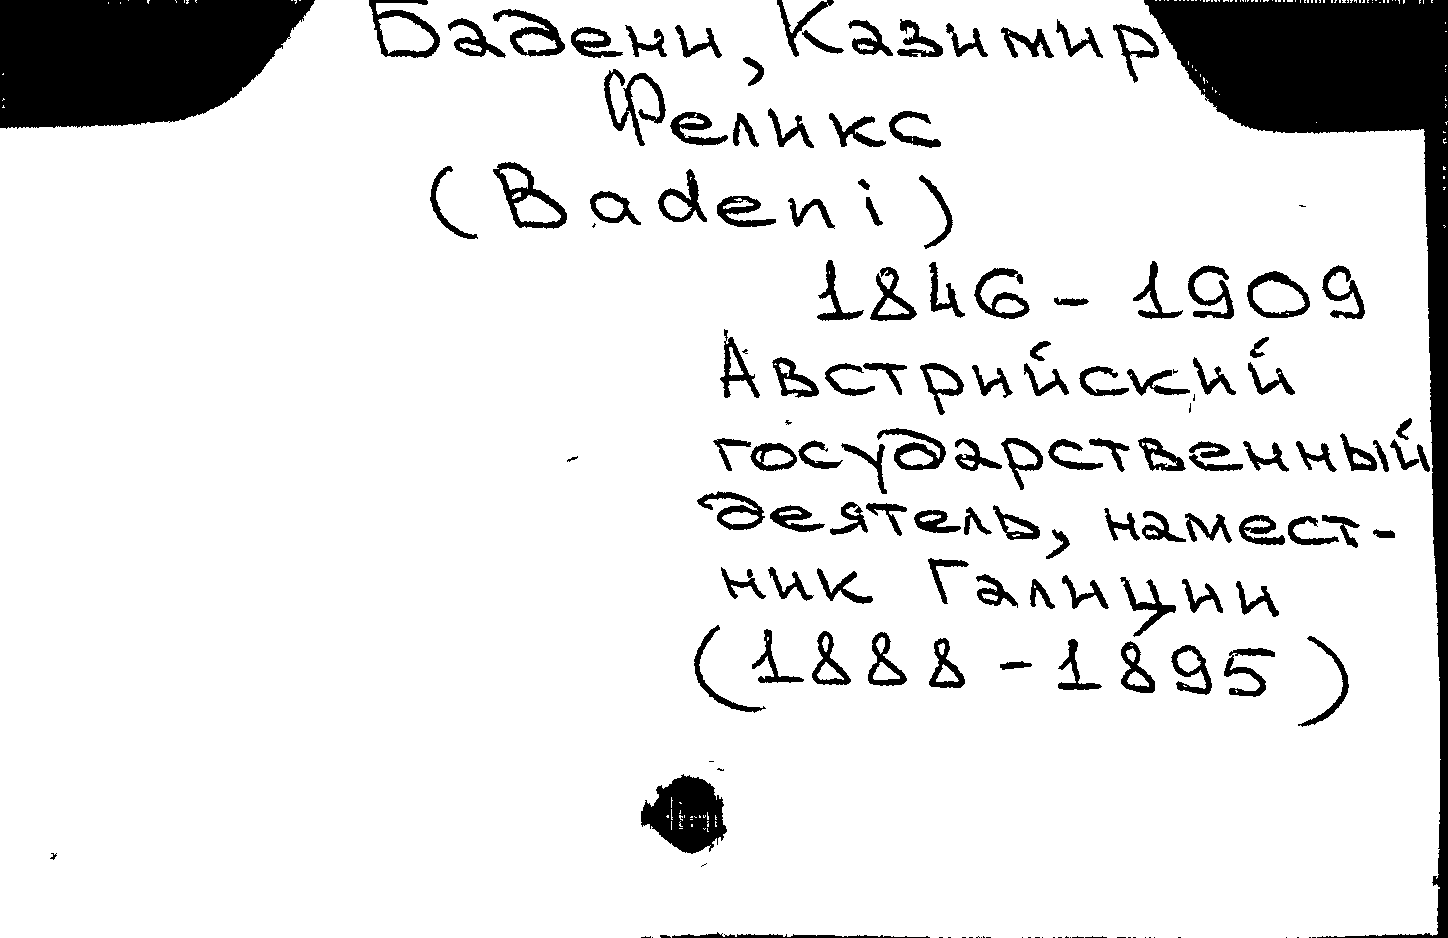 Бадени, Казимир
Феликс
(Badeni)
1846-1909
Австрийский
государственный
деятель, намест-
ник Галиции
(1888-1895)